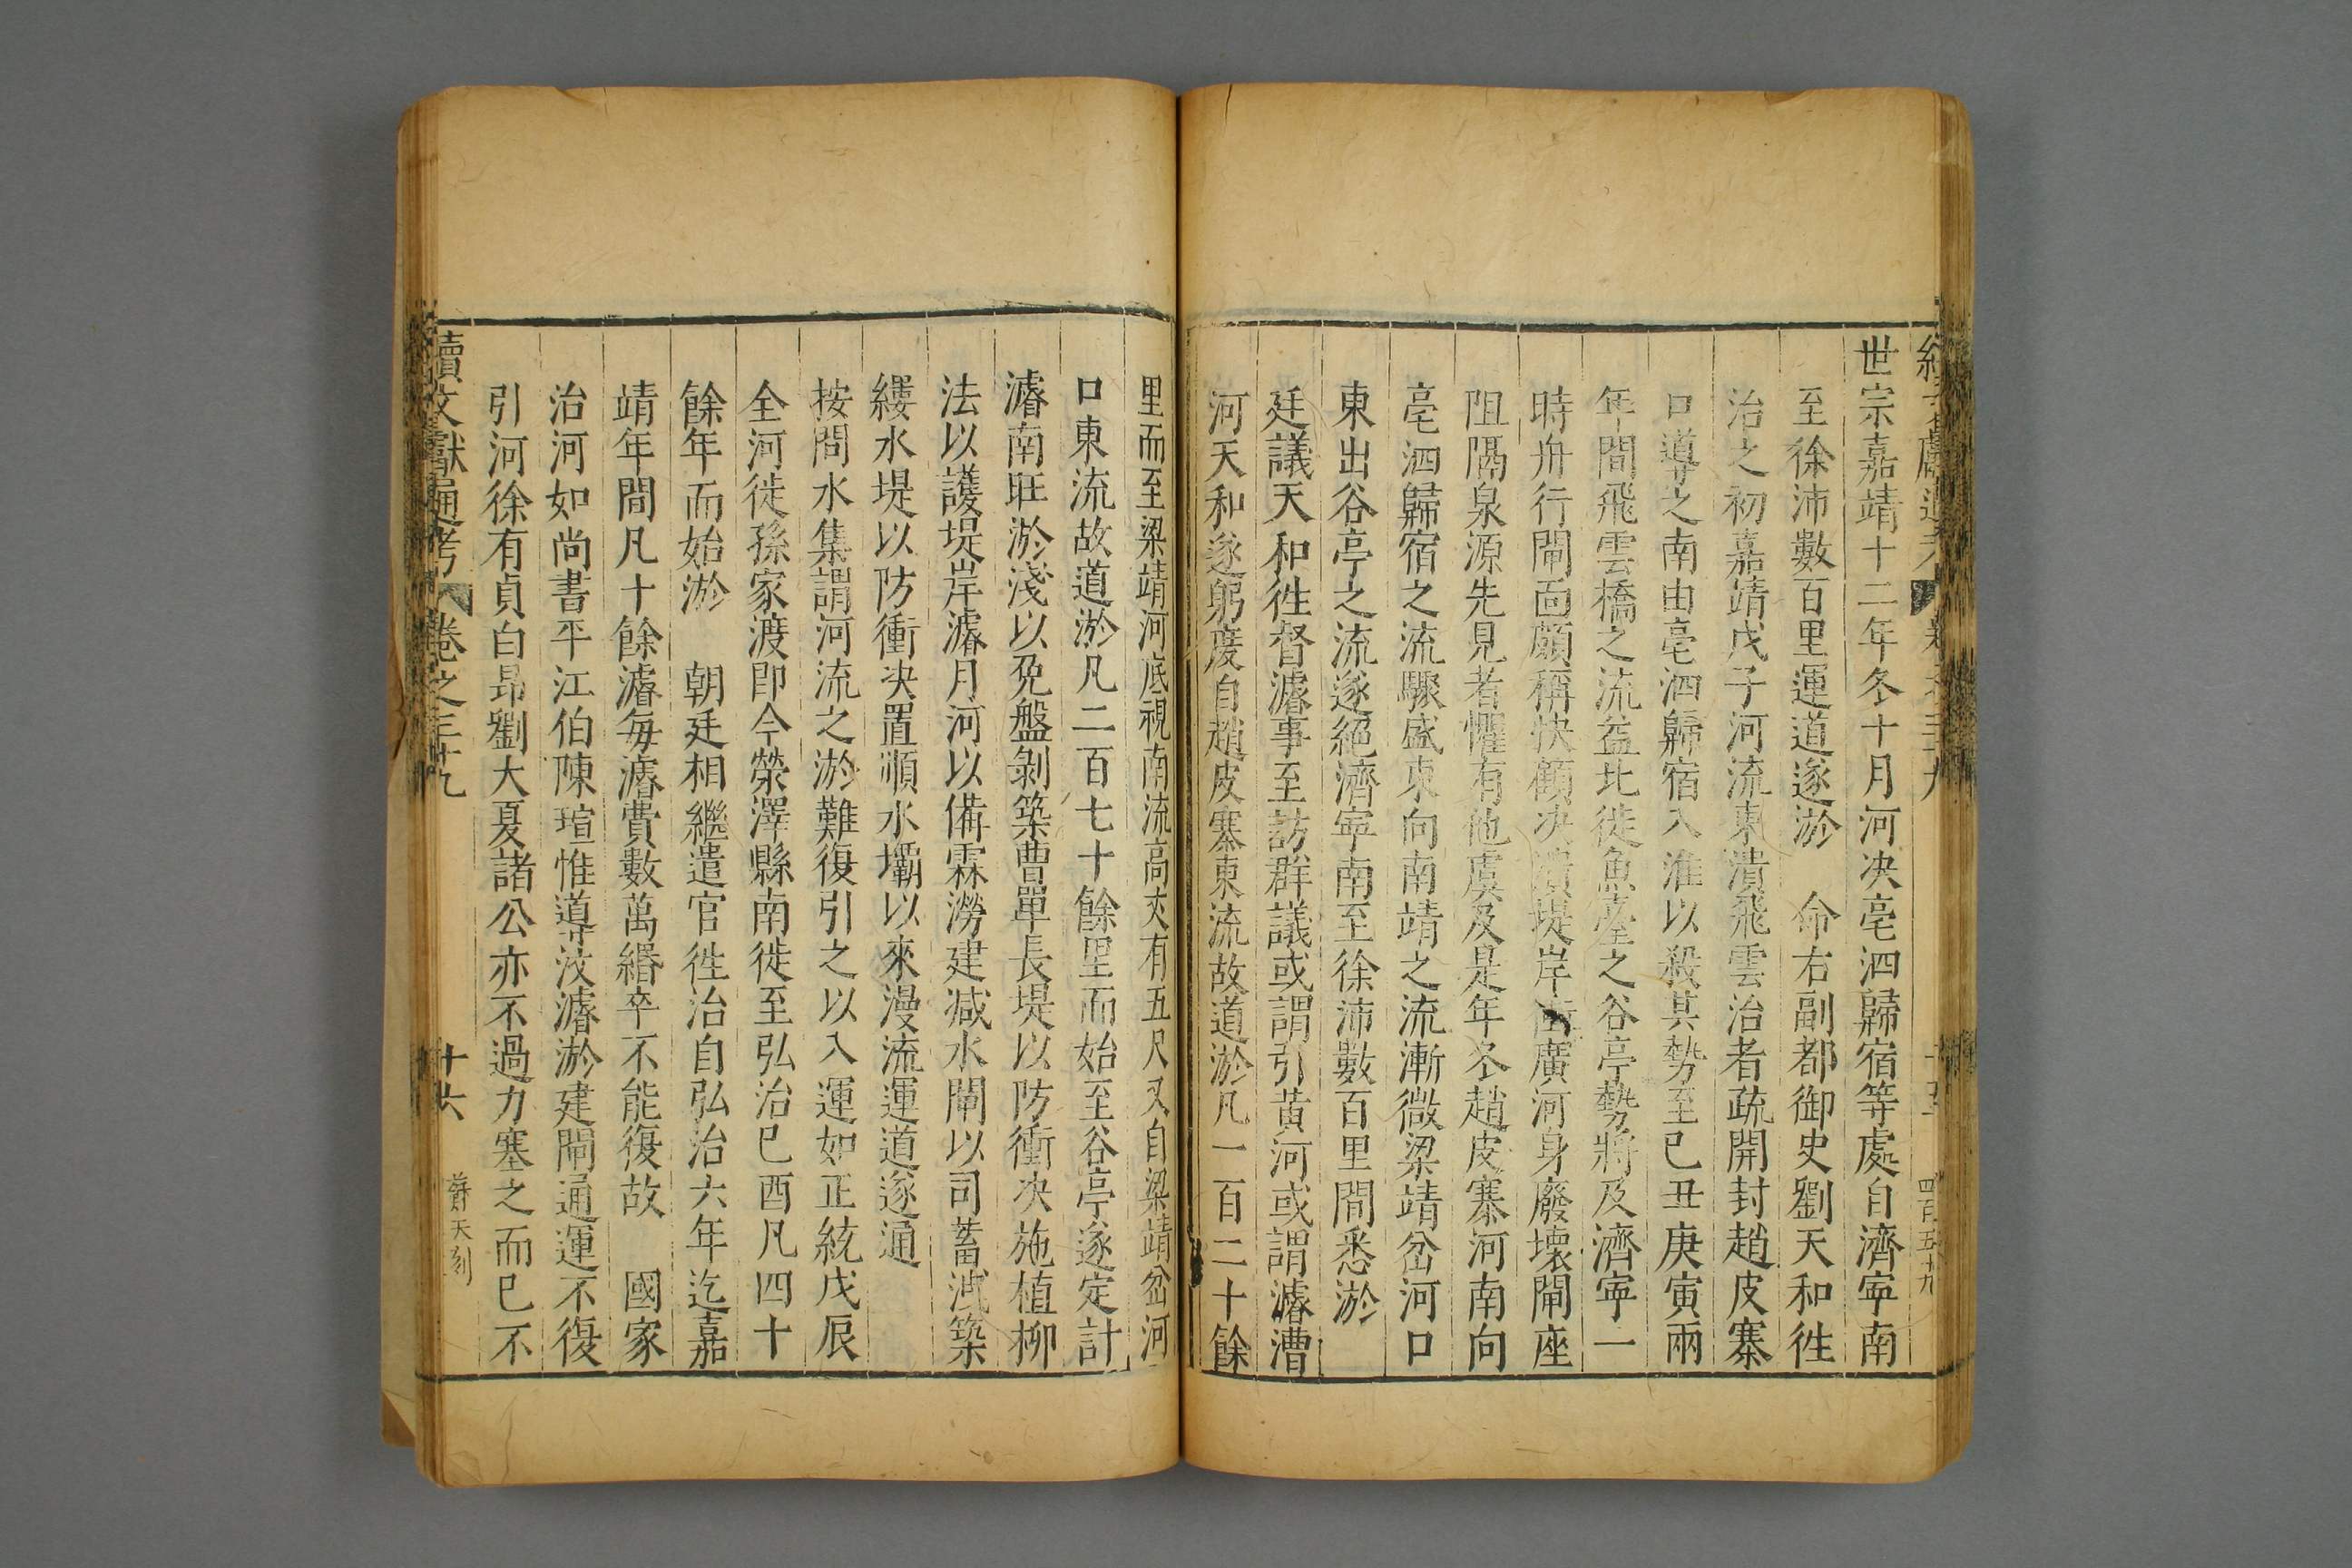 世宗嘉靖十二年冬十月河决亳泗歸宿等處自濟寧南
至徐沛數百里運道遂淤 命右副都御史劉天和徃
治之初嘉靖戊子河流東潰飛雲治者疏開封趙皮寨
口導之南由亳泗歸宿入淮以殺其勢至巳丑庚寅兩
年間飛雲橋之流益北徙魚臺之谷亭勢將及濟寧一
時舟行閘面頗稱快顧决潰堤岸廣河身廢壞閘座
阻隔泉源先見者懼有他虞及是年冬趙皮寨河南向
亳泗歸宿之流驟盛東向南靖之流漸微梁靖岔河口
東出谷亭之流遂絕濟寧南至徐沛數百里間悉淤
廷議天和徃督濬事至訪群議或謂引黃河或謂濬漕
河天和遂躬度自趙皮寨東流故道淤凡一百二十餘
里而至梁靖河底視南流高丈有五尺又自梁靖岔河
口東流故道淤凡二百七十餘里而始至谷亭遂定計
濬南旺淤淺以免盤剝築曹單長堤以防衝决施植柳
法以護堤岸濬月河以備霖澇建减水閘以司蓄洩築
縷水堤以防衝决置順水壩以來漫流運道遂通
按閭水集謂河流之淤難復引之以入運如正統戊辰
全河徙孫家渡即今滎澤縣南徙至弘治巳酉凡四十
餘年而始淤 朝廷相繼遣官徃治自弘治六年迄嘉
靖年間凡十餘濬每濬費數萬緡卒不能復故 國家
治河如尚書平江伯陳瑄惟導汶濬淤建閘通運不復
引河徐有貞白昂劉大夏諸公亦不過力塞之而巳不
續文獻通考 卷之三十九 十六